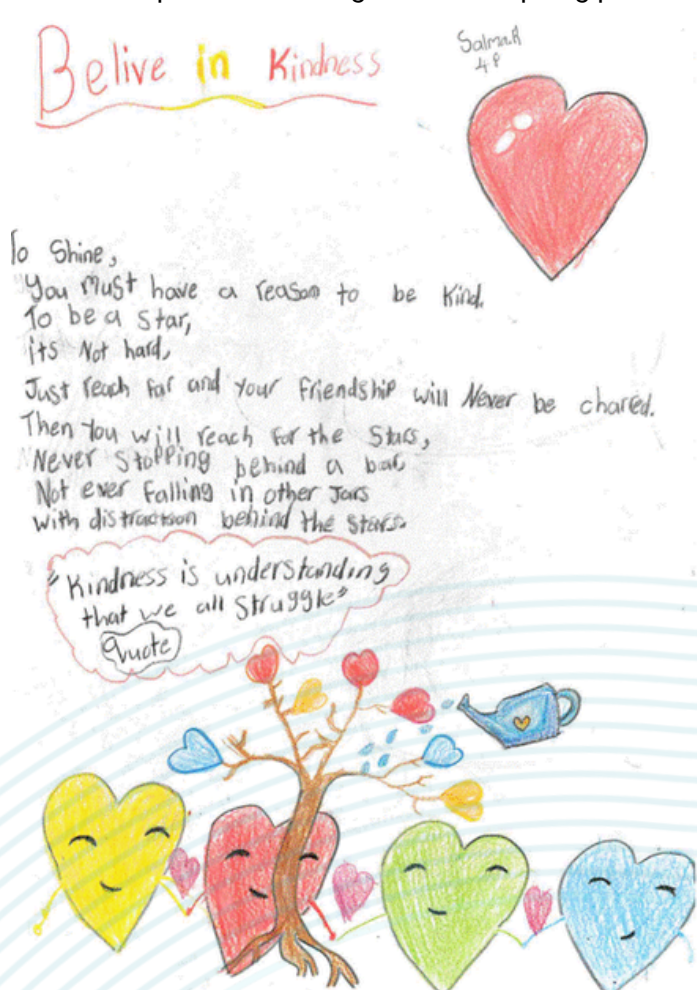 Belive in Kindness
Salma.R
4P
To Shine,
You Must have a reason to be Kind.
To be a Star,
its Not hard,
Just reach far and your friendship will Never be chared.
Then You will reach for the Stars,
Never Stopping behind a bar,
Not ever falling in other Jars
with distraction behind the stars.
"Kindness is understanding
that we all Struggle"
Quote